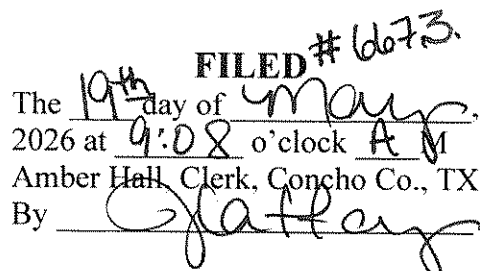 FILED #6673.
The 19th day of May,
2026 at 9:08 o'clock A M
Amber Hall, Clerk, Concho Co., TX
By